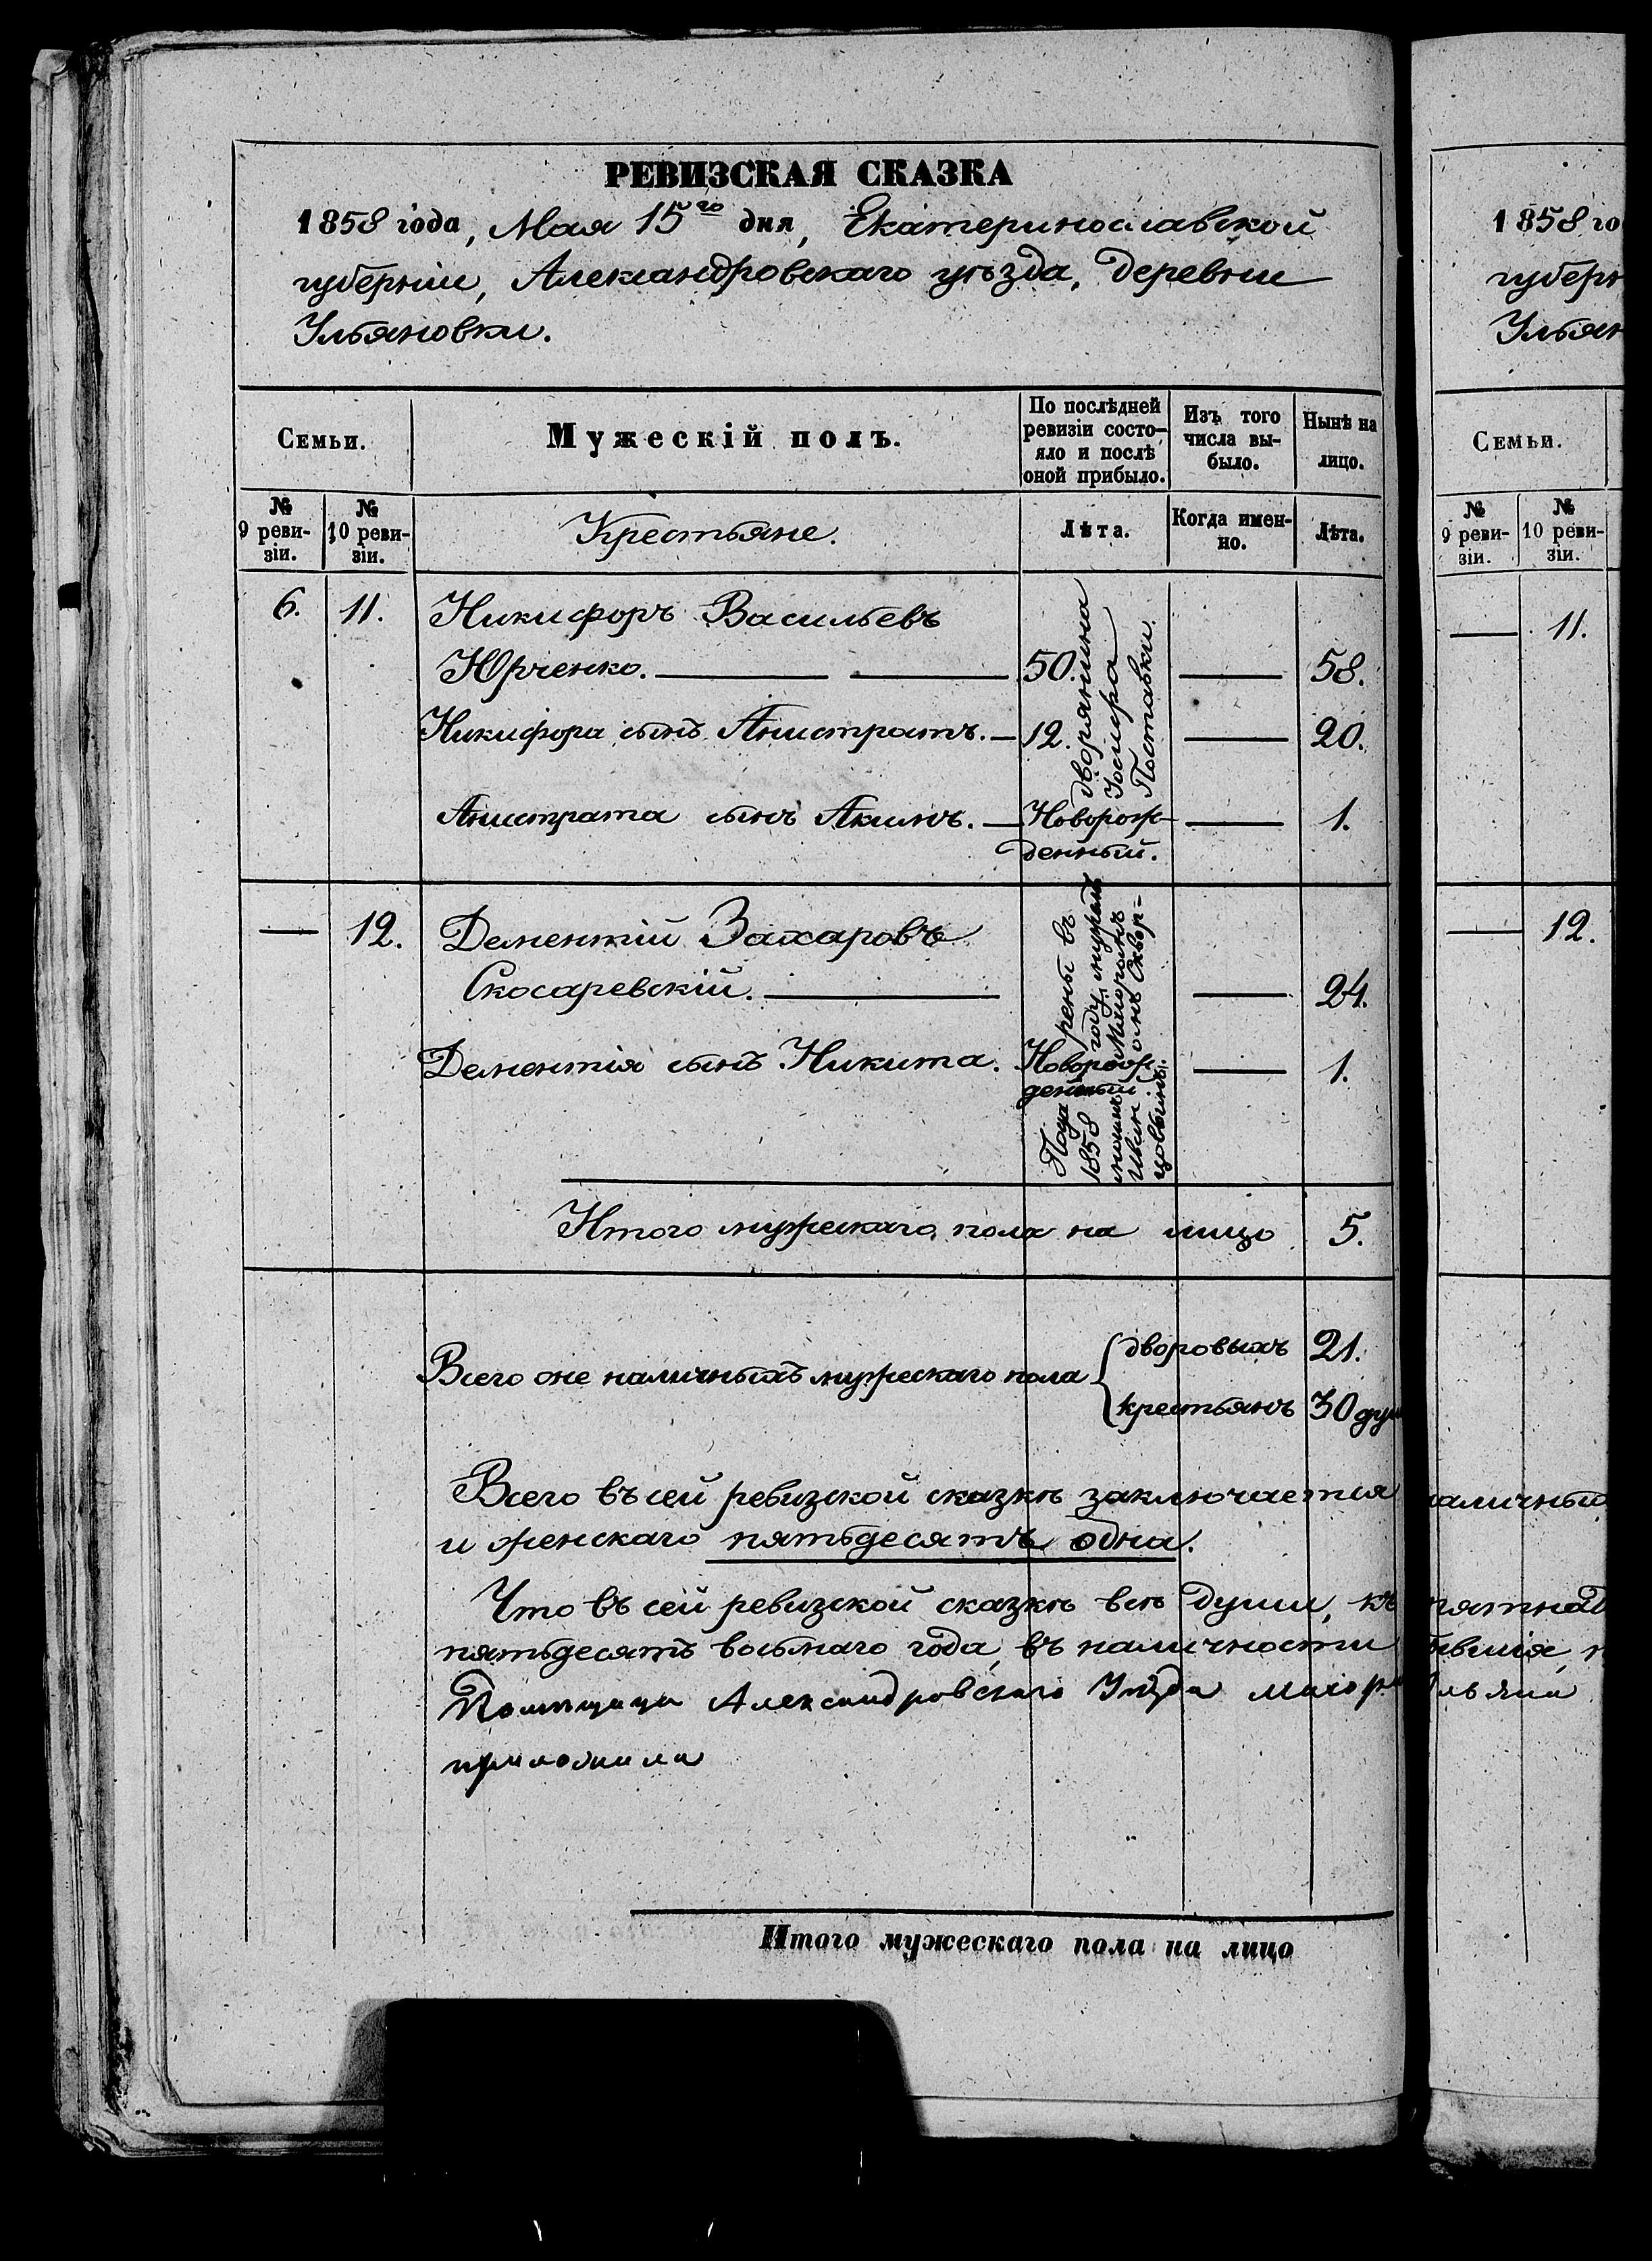 РЕВИЗСКАЯ СКАЗКА
1858 года, Мая 15го дня, Екатеринославской
губерніи, Александровскаго уѣзда, деревни
Ульяновки.
Семьи.
Мужескій полъ.
По послѣдней ревизіи состо-
яло и послѣ оной прибыло.
Изъ того числа вы-
было.
Нынѣ на лицо.
№ 9 реви-
зіи.
№ 10 реви-
зіи.
Крестьяне.
Лѣта.
Когда имен-
но.
Лѣта.
6. 11. Никифоръ Васильевъ
Юрченко. 50. 58.
Никифора сынъ Анистратъ. 12. 20.
Анистрата сынъ Акимъ. Новорож- 1.
денный.
дворянина
Поставки.
12. Дементій Захаровъ
Скосаревскій. 24.
Дементія сынъ Никита. Новорож- 1.
денный
Пода рены въ
1858 году
Итого мужескаго пола на лицо 5.
Всего оне наличныхъ мужескаго пола
дворовыхъ 21.
крестьянъ 30 душ
Всего въ сей ревизской сказкѣ заключается
и женскаго пятьдесятъ одна.
Что въ сей ревизской сказкѣ всѣ души, къ
пятьдесятъ восьмаго года, въ наличности
Помѣщица Александровскаго Уѣзда маіор
приложила
Итого мужескаго пола на лицо
1858 го
губерн
Ульян
Семьи.
№ 9 реви-
зіи.
№ 10 реви-
зіи.
11.
12.